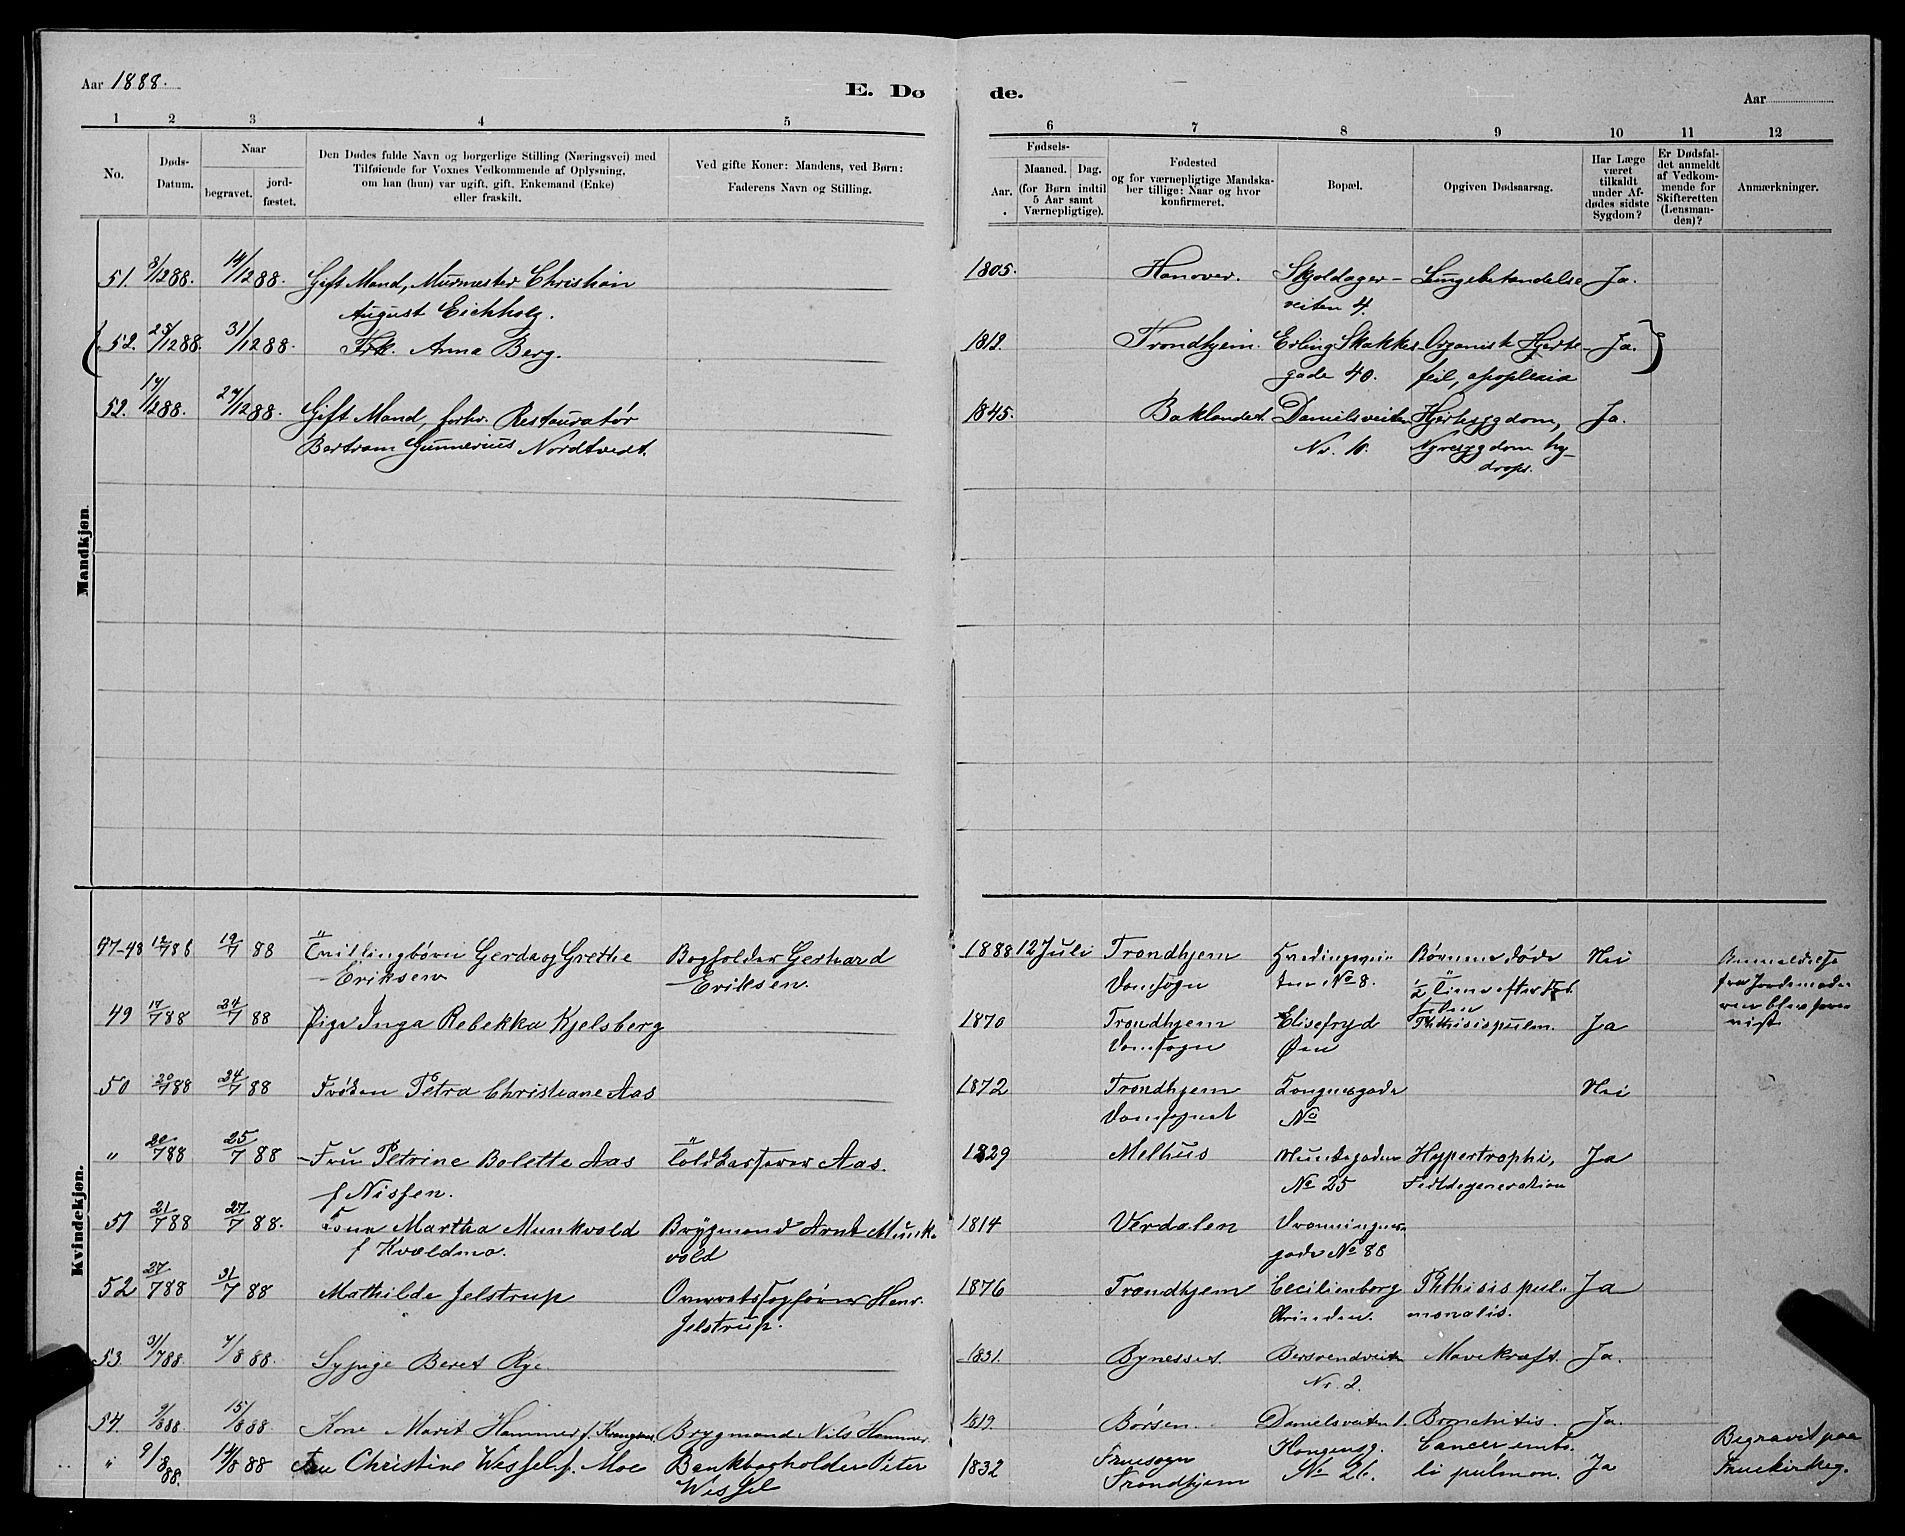 Aar 1888.
E. Dø
de.
Aar
1 2 3 4 5
6 7 8 9 10 11 12
No.
Døds-
Datum.
Naar
begravet.
jord-
fæstet.
Den Dødes fulde Navn og borgerlige Stilling (Næringsvei) med
Tilføiende for Voxnes Vedkommende af Oplysning,
om han (hun) var ugift, gift, Enkemand (Enke)
eller fraskilt.
Ved gifte Koner: Mandens, ved Børn:
Faderens Navn og Stilling.
Fødsels-
Aar.
Maaned. Dag.
(for Børn indtil
5 Aar samt
Værnepligtige).
Fødested
og for værnepligtige Mandska-
ber tillige: Naar og hvor
konfirmeret.
Bopæl.
Opgiven Dødsaarsag.
Har Læge
været
tilkaldt
under Af-
dødes sidste
Sygdom?
Er Dødsfal-
det anmeldt
af Vedkom-
mende for
Skifteretten
(Lensman-
den)?
Anmærkninger.
Mandkjøn.
51. 8/12 88. 14/12 88. Gift Mand, Murmester Christian 1805. Hanover. Skjoldager- Lungebetændelse Ja.
August Eichholz. veiten 4.
52. 25/12 88. 31/12 88. Frk. Anna Berg. 1812. Trondhjem. Erling Skakkes Organisk Hjerte- Ja.
gade 40. feil, apoplexia
52. 17/12 88. 27/12 88. Gift Mand, forhv. Restauratør 1845. Baklandet. Danielsveiten Hjertesygdom, Ja.
Bertram Gunnerius Nordtvedt. Nr. 10. Nyresygdom hy-
drops.
Kvindekjøn.
47-48 12/7 88 19/7 88 Tvillingbørn Gerda og Grethe Bogholder Gerhard 1888 12 Juli Trondhjem No 8. Børnene døde Nei
Eriksen Eriksen. Domsogn 1/2 Time efter Fød-
selen
49 17/7 88 24/7 88 Pige Inga Rebekka Kjelsberg 1870 Trondhjem Elisefryd Phthisis pulm. Ja
Domsogn Øen
50 20/7 88 24/7 88 Frøken Petra Christiane Aas 1872 Trondhjem Kongensgade Nei
Domsognet No
" 20/7 88 25/7 88 Fru Petrine Bolette Aas Toldkasserer Aas. 1829 Melhus Munkegaden Hypertrophi, Ja
f Nissen. No 25 Fedtdegeneration
51 21/7 88 27/7 88. Martha Munkvold Brygmand Arnt Munk- 1814 Verdalen Dronningens
f Kvældmo. vold gade No 88
52 27/7 88 31/7 88 Mathilde Jelstrup Overretssagfører Henr. 1876 Trondhjem Cecilienborg Phthisis pul- Ja
Jelstrup. Strinden. monalis.
53 31/7 88. 7/8 88. Sypige Beret Rye 1831. Bynesset. Bersvendveiten Mavekræft. Ja.
Nr. 2.
54. 9/8 88 15/8 88. Kone Marit Hammer f. Brygmand Nils Hammer. 1819. Børsen. Danielsveiten 1. Bronchitis. Ja.
" 9/8 88. 14/8 88 Fru Christine Wessel f. Moe Bankbogholder Peter 1832 Fruesogn Kongensg. Cancer embo- Ja Begravet paa
Wessel Trondhjem No 26. li pulmon. Fruekirkeg.